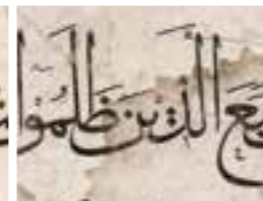 بَعَ الَّذِينَ ظَلَمُوا